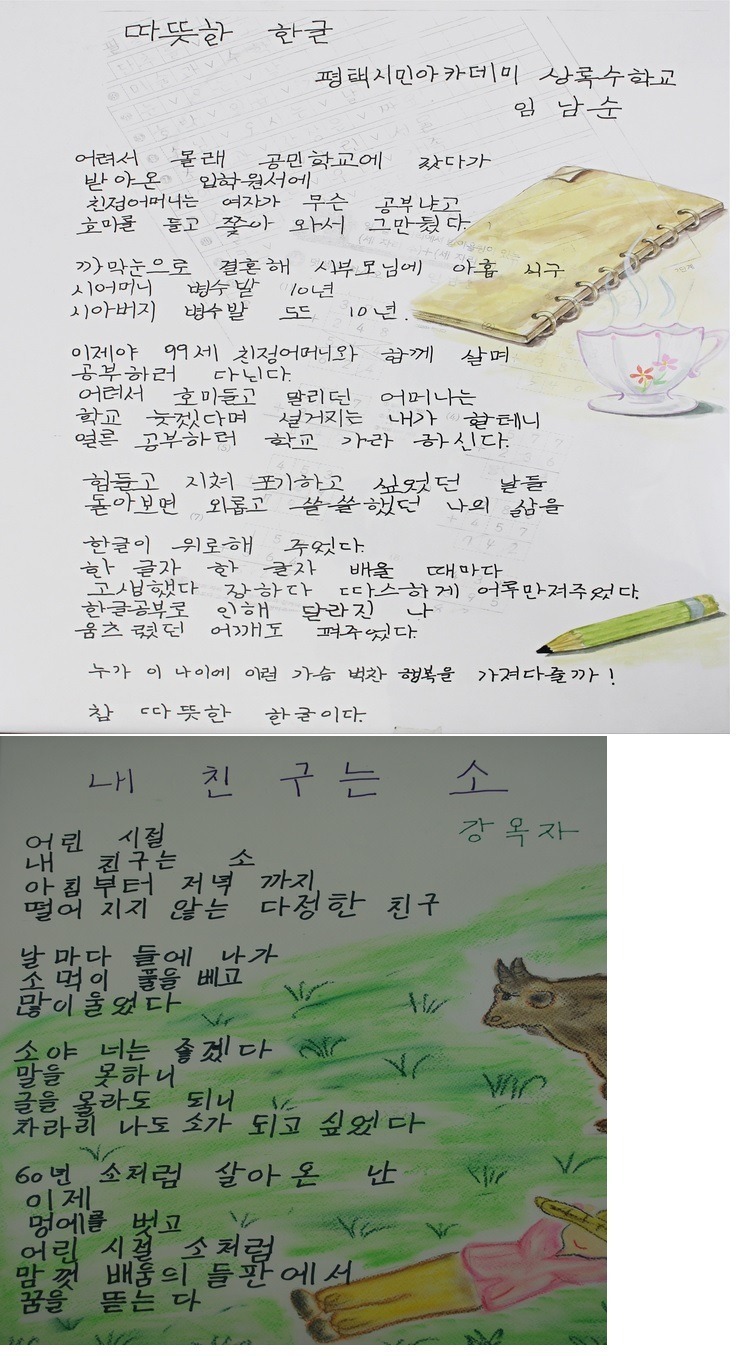 따뜻한 한글
평택시민아카데미 상록수학교
임남순
어려서 몰래 공민학교에 갔다가
받아온 입학원서에
친정어머니는 여자가 무슨 공부냐고
호미를 들고 쫓아 와서 그만뒀다.
까막눈으로 결혼해 시부모님에 아홉 식구
시어머니 병수발 10년
시아버지 병수발 또 10년.
이제야 99세 친정어머니와 함께 살며
공부하러 다닌다.
어려서 호미들고 말리던 어머니는
학교 늦겠다며 설거지는 내가 할테니
얼른 공부하러 학교 가라 하신다.
힘들고 지쳐 포기하고 싶었던 날들
돌아보면 외롭고 쓸쓸했던 나의 삶을
한글이 위로해 주었다.
한 글자 한 글자 배울 때마다
고생했다 장하다 따스하게 어루만져주었다.
한글공부로 인해 달라진 나
움츠렸던 어깨도 펴주었다.
누가 이 나이에 이런 가슴 벅찬 행복을 가져다줄까!
참 따뜻한 한글이다.
내 친구는 소
강옥자
어린 시절
내 친구는 소
아침부터 저녁 까지
떨어 지지 않는 다정한 친구
날마다 들에 나가
소먹이 풀을 베고
많이울었다
소야 너는 좋겠다
말을 못하니
글을 몰라도 되니
차라리 나도 소가 되고 싶었다
60년 소처럼 살아온 난
이제
멍에를 벗고
어린 시절 소처럼
맘껏 배움의 들판에서
꿈을 뜯는다